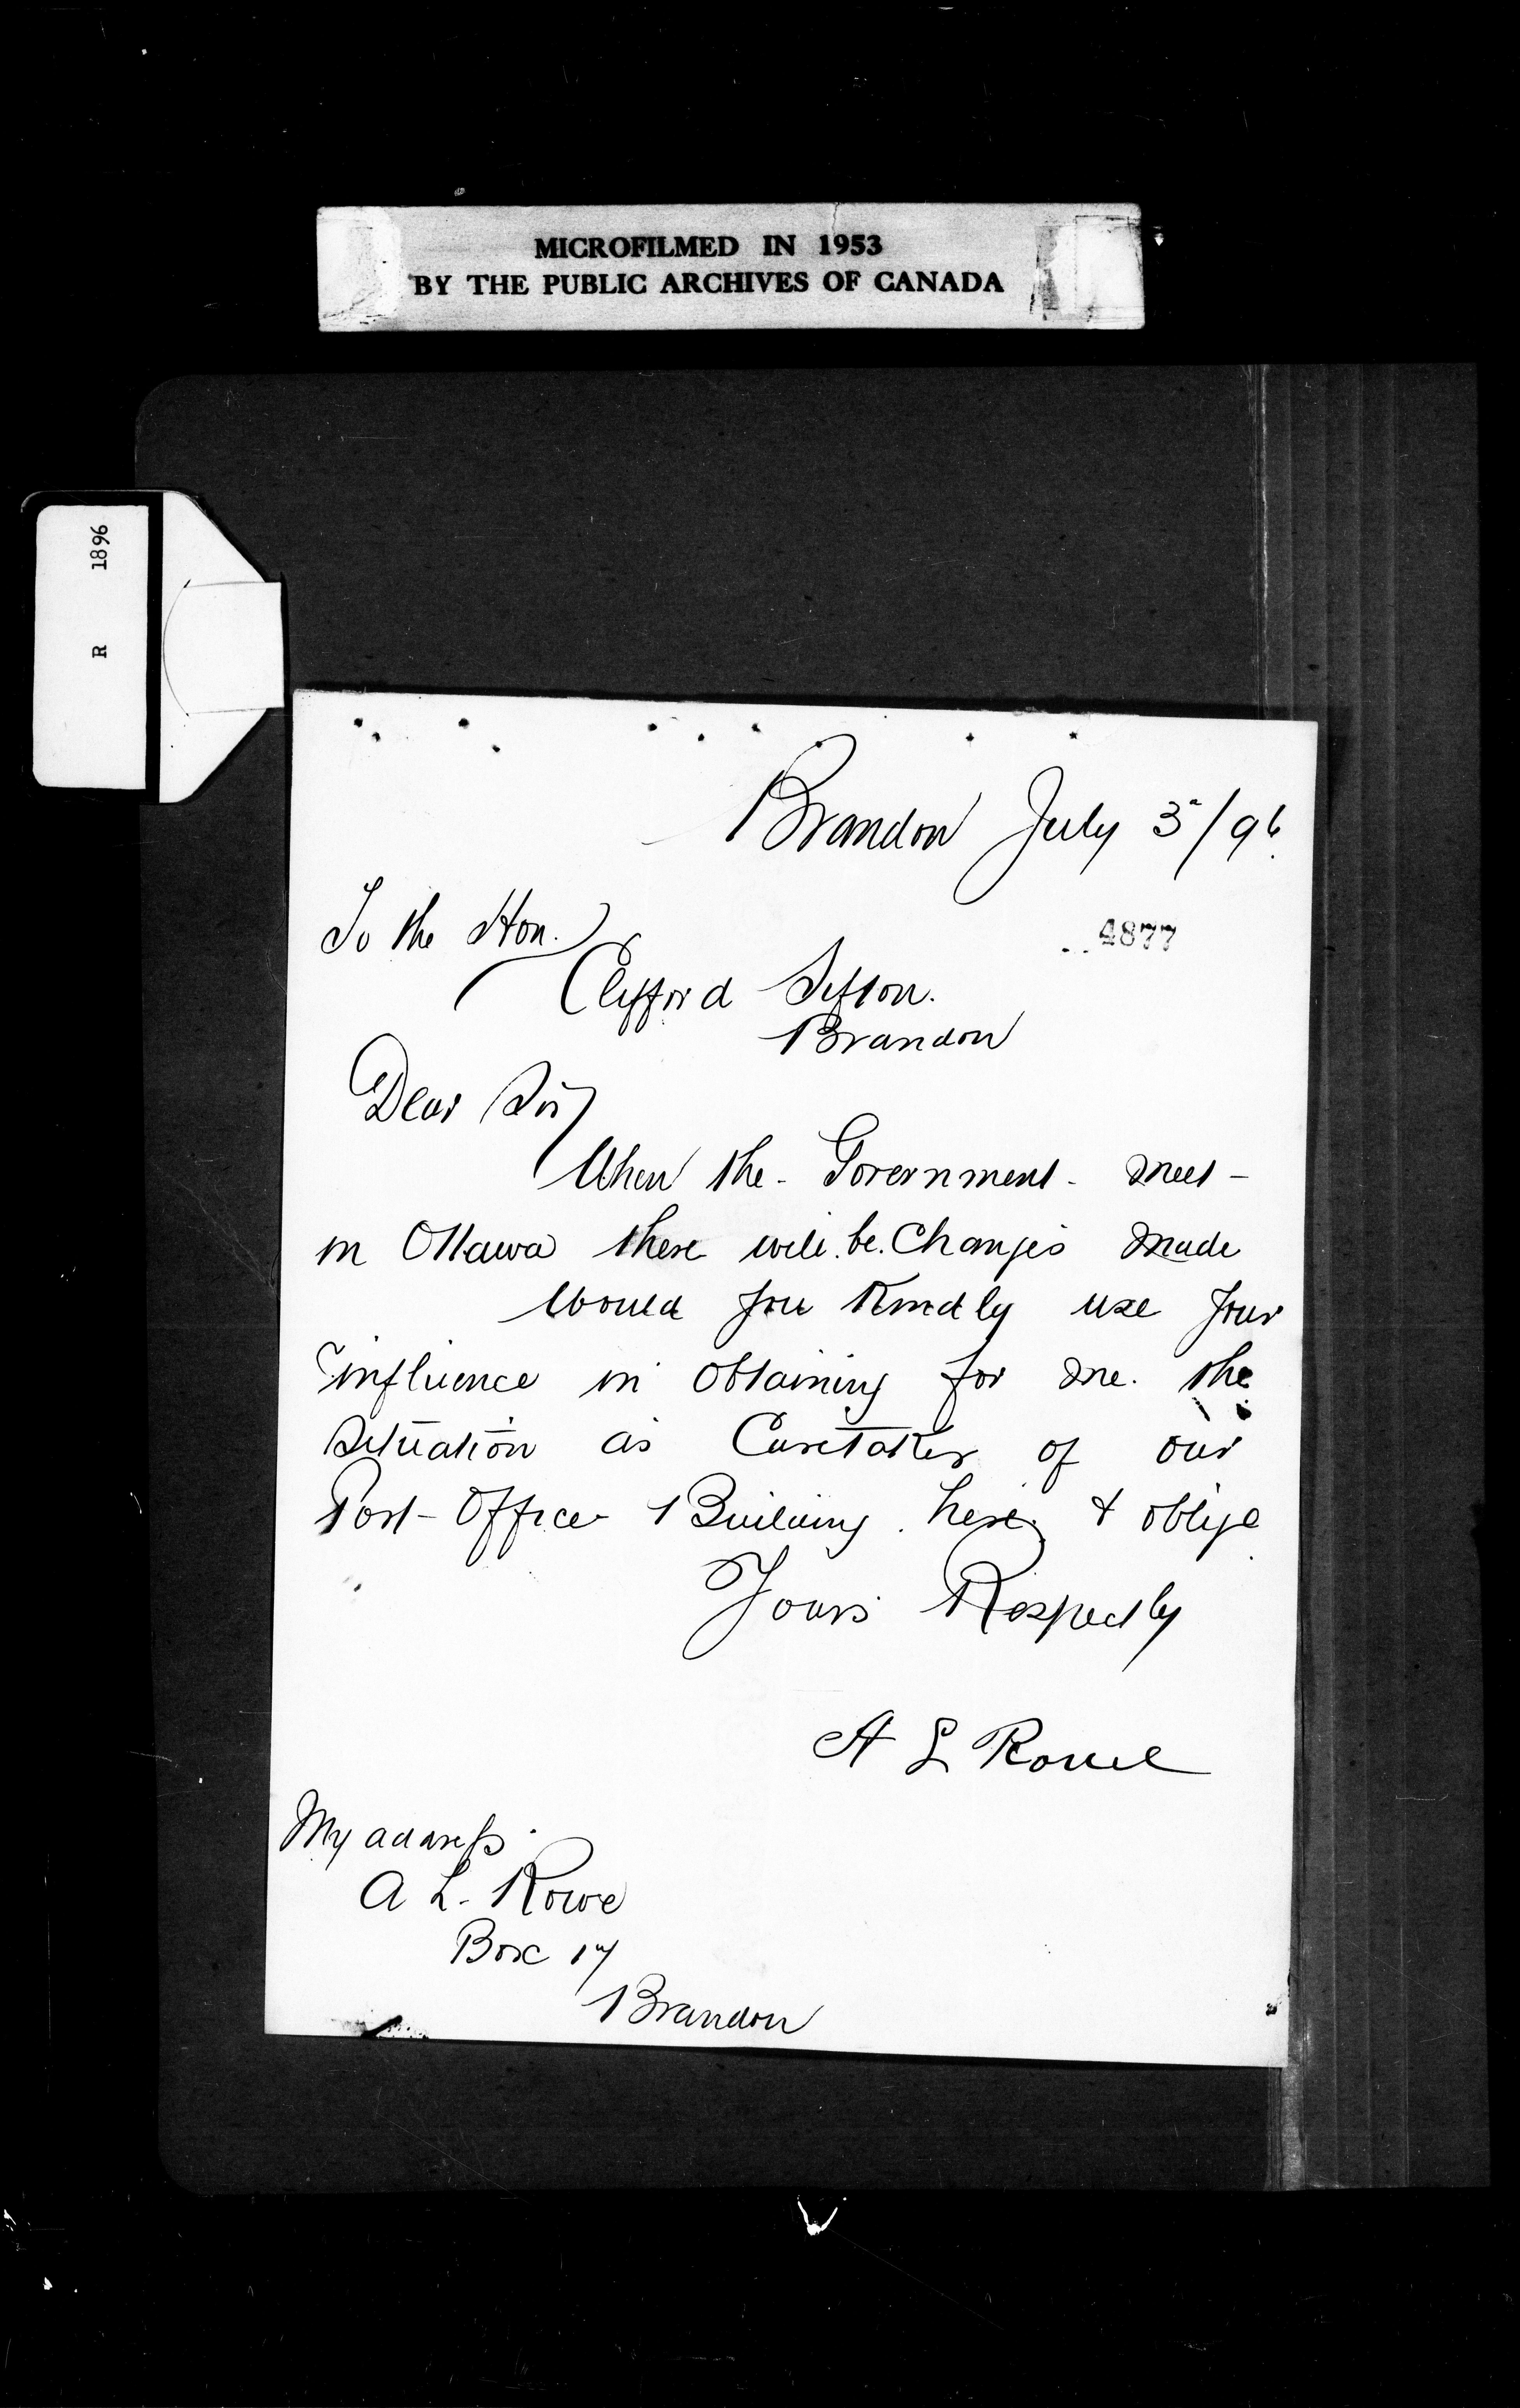 MICROFILMED IN 1953
BY THE PUBLIC ARCHIVES OF CANADA
R 1896
Brandon July 3"/96.
To the Hon.
4877
Clifford Sifton.
Brandon
Dear Sir
When the Government meet
in Ottawa there will be Changes made
Would you Kindly use your
influence in obtaining for me. the
Situation as Caretaker of our
Post-Office Building here. & oblige
Yours Respectly
A L Rowe
My address
A L. Rowe
Box 17
Brandon